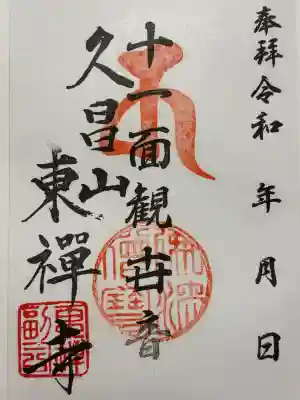 奉拝 令和 年 月 日
十一面観世音
久昌山
東禪寺